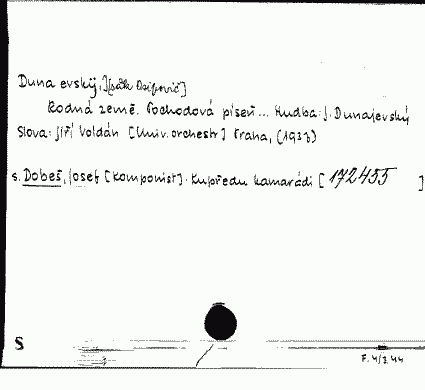 Dunaevskij, I[saak Osipovič]
Rodná země. Pochodová píseň... Hudba: J. Dunajevský
Slova: Jiří Voldán [Univ. orchestr] Praha, (1933)
s. Dobeš, Josef [komponist]. Kupředu kamarádi [172455]
S
F. 4/2 44